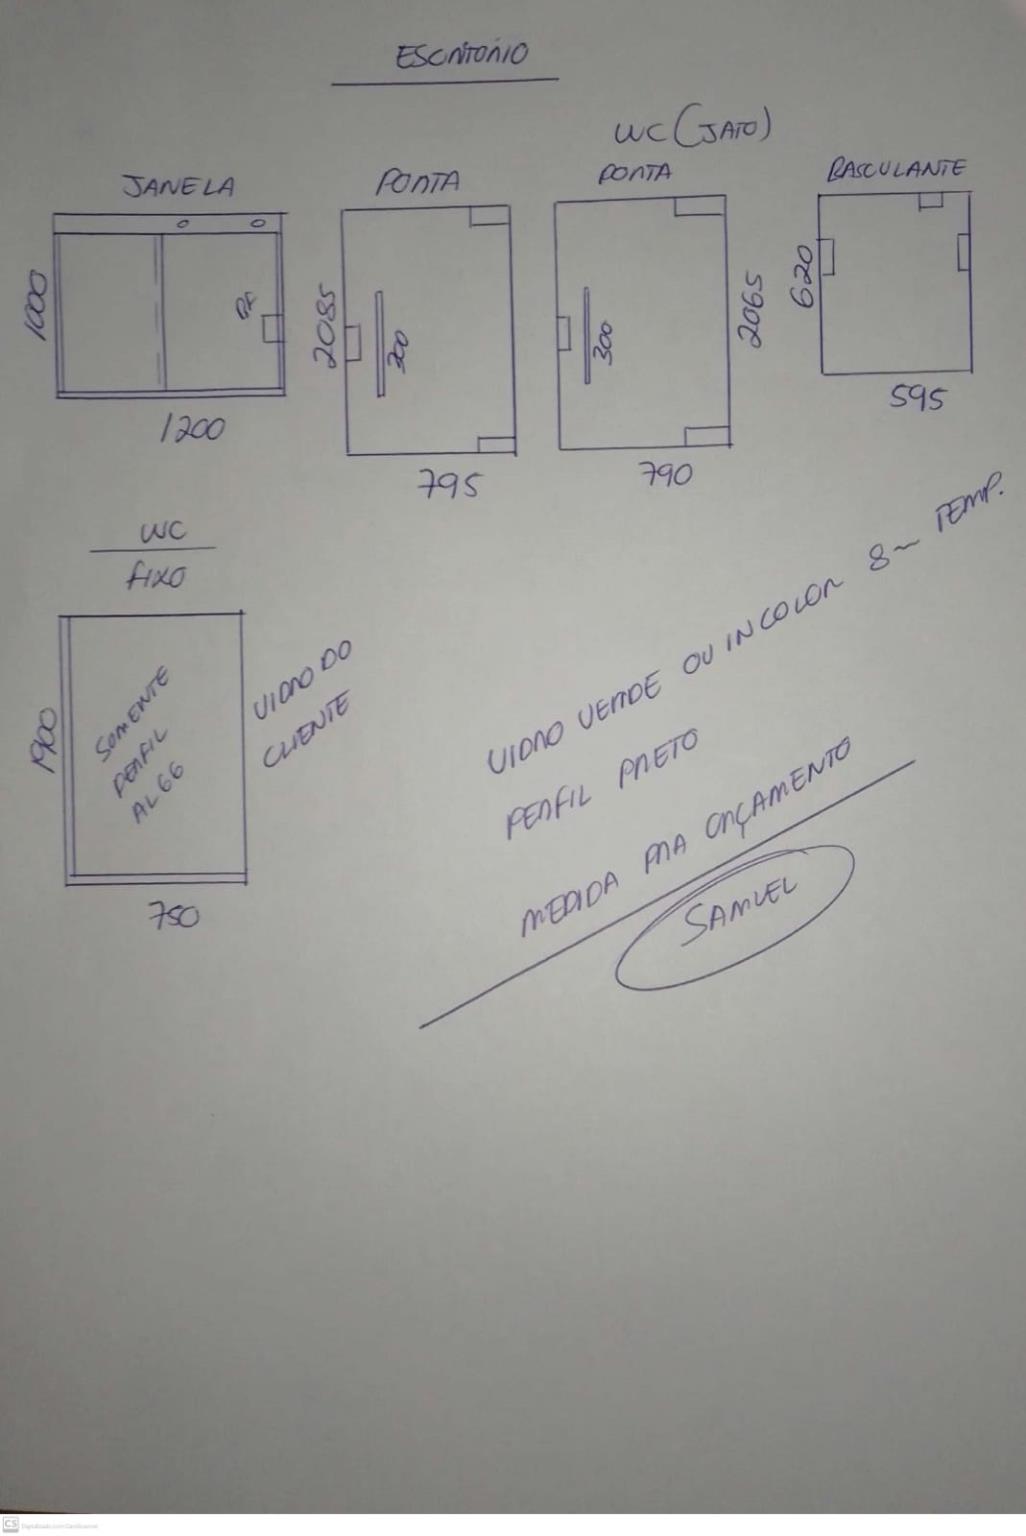 ESCRITÓRIO
WC (JATO)
JANELA
PORTA
PORTA
BASCULANTE
1000
1200
2085
300
795
300
2065
790
620
595
WC
FIXO
1900
SOMENTE
PERFIL
AL66
750
VIDRO DO
CLIENTE
VIDRO VERDE OU INCOLOR 8 TEMP.
PERFIL PRETO
MEDIDA PRA ORÇAMENTO
SAMUEL
CS